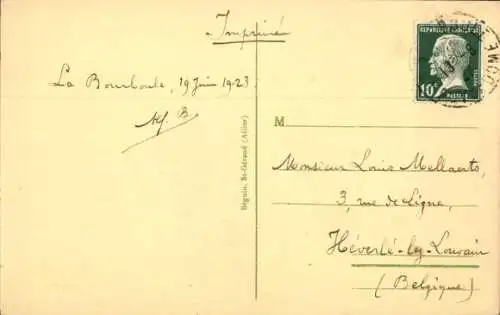 Imprimé
REPUBLIQUE FRANÇAISE
POSTES
10c
PASTEUR
DOME
La Bourboule, 19 Juin 1923
Alf. B
M
Monsieur Louis Mellaerts,
3, rue de Ligne,
Héverlé-lez-Louvain
(Belgique)
Béguin, St-Gérand (Allier)